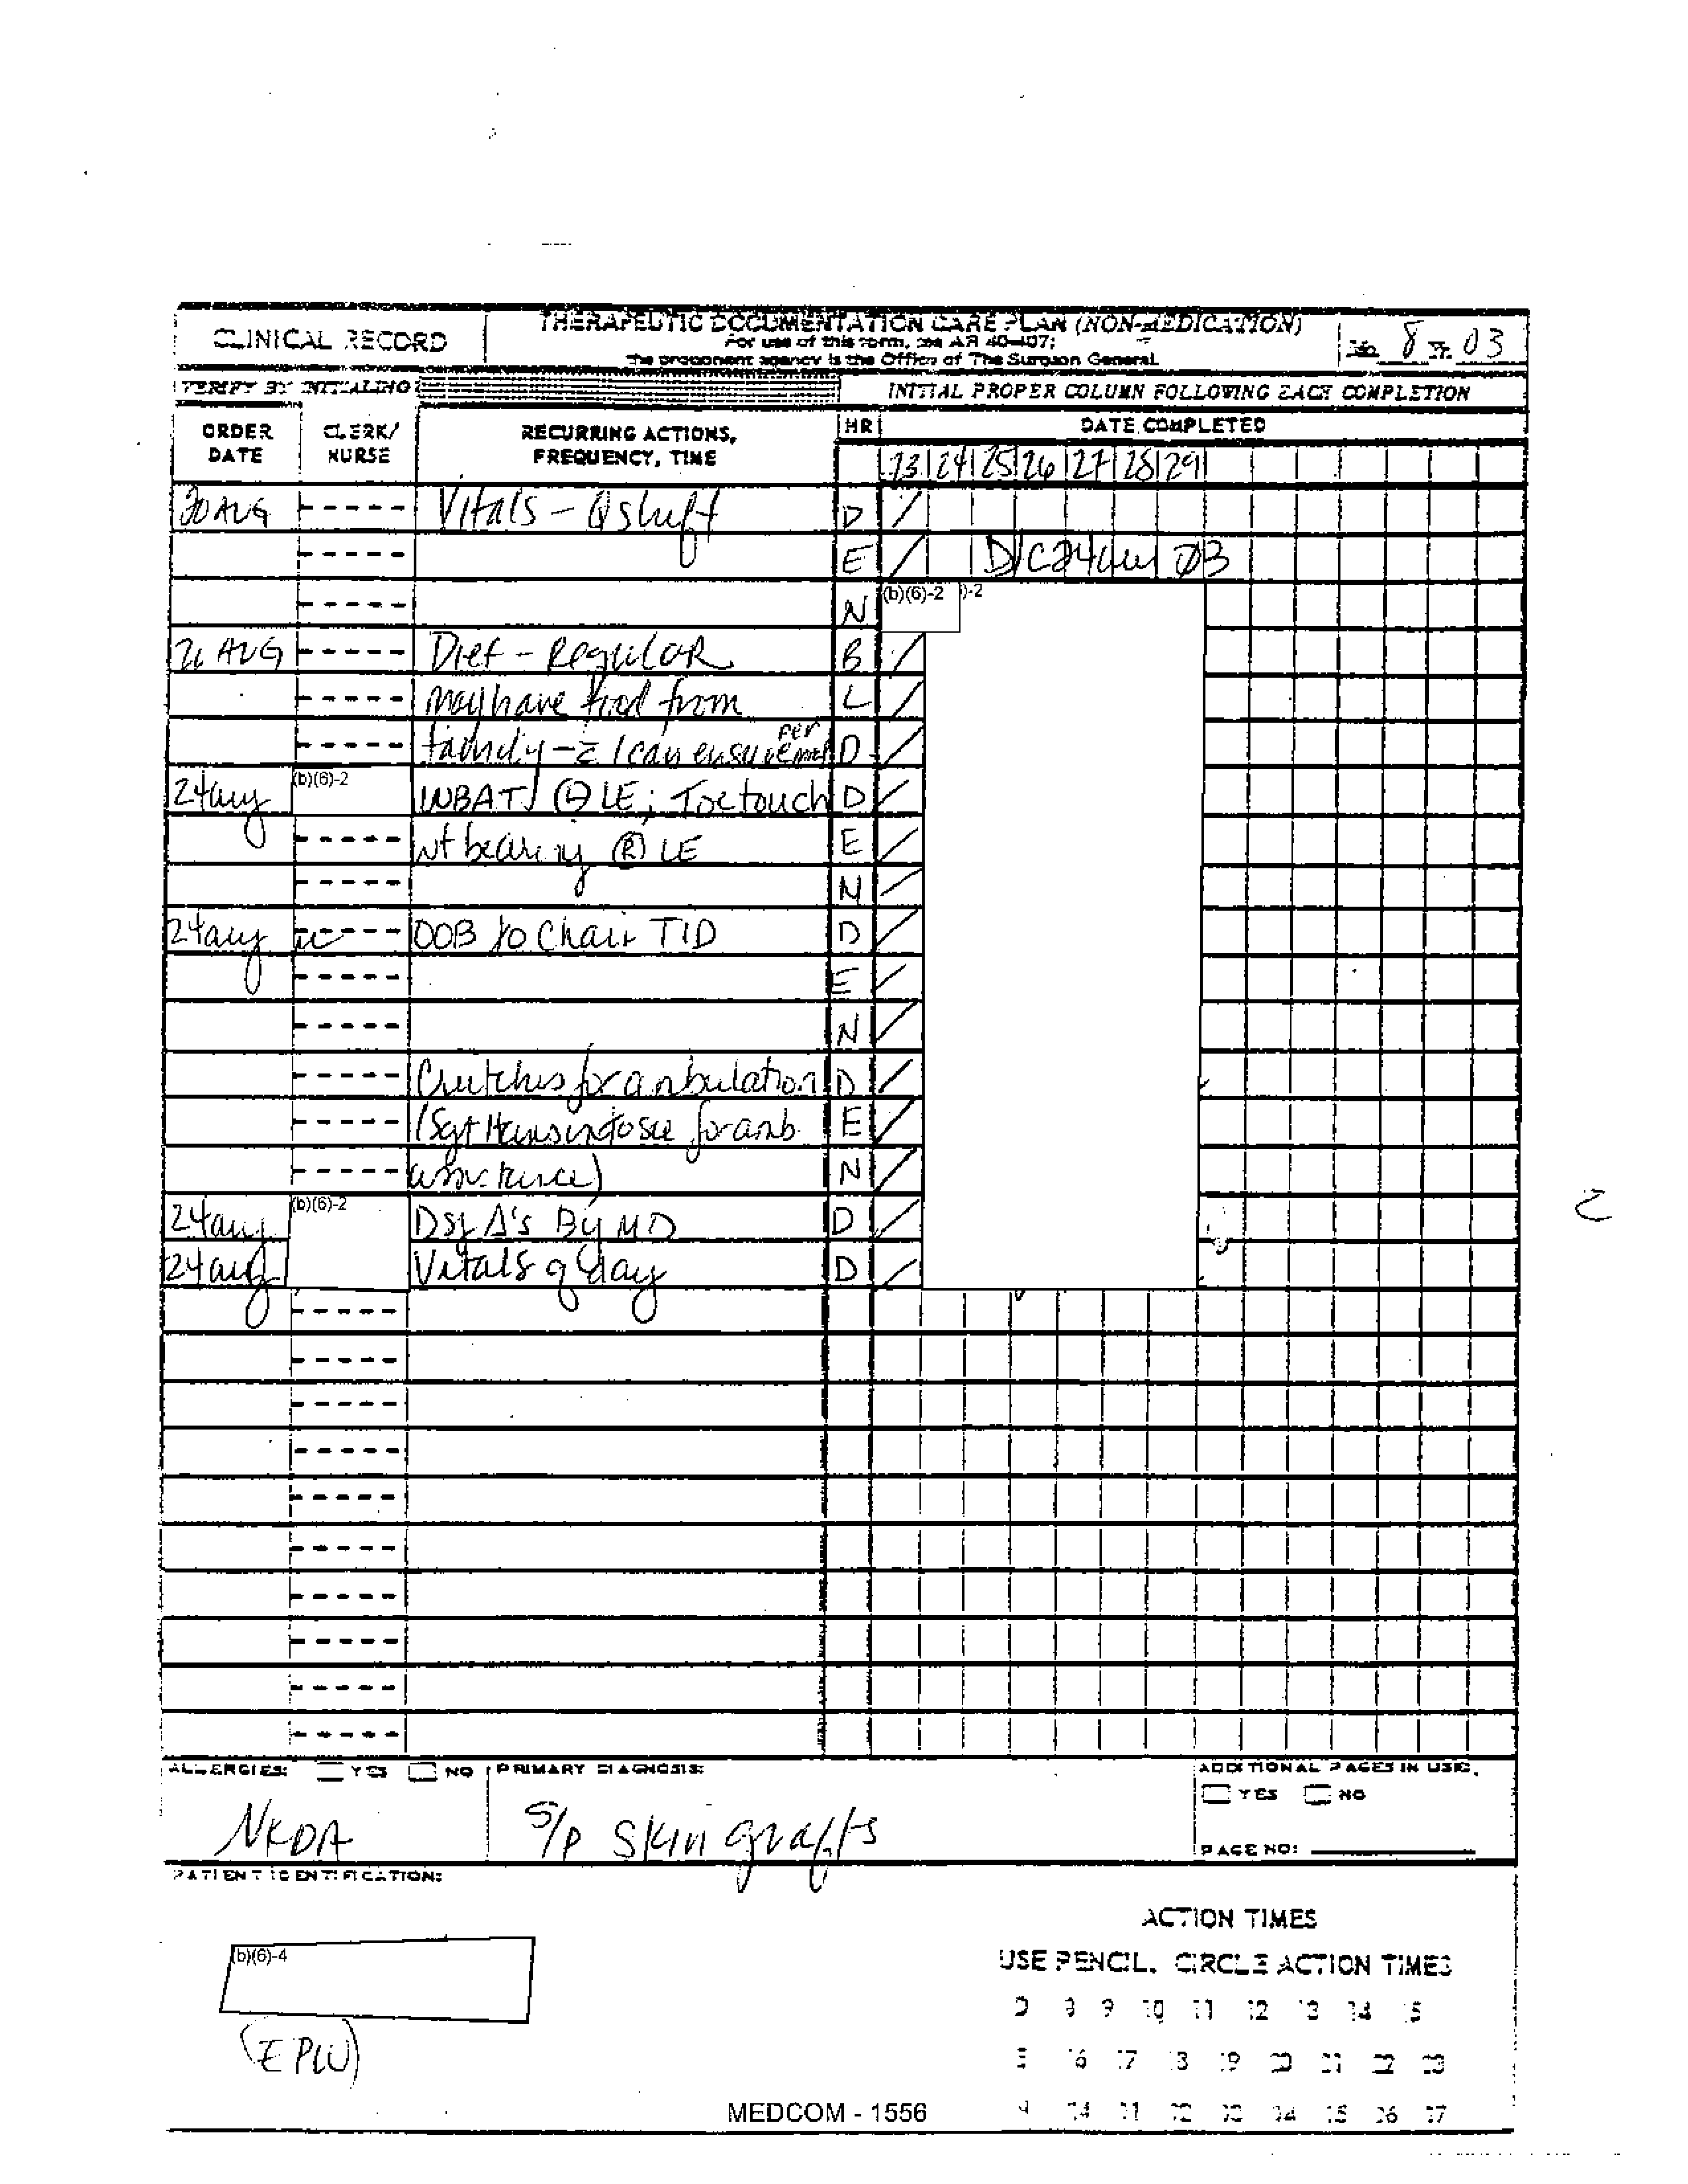 CLINICAL RECORD
THERAPEUTIC DOCUMENTATION CARE PLAN (NON-MEDICATION)
For use of this form, see AR 40-407;
the proponent agency is the Office of The Surgeon General.
Mo. 8 Yr. 03
VERIFY BY INITIALING
INITIAL PROPER COLUMN FOLLOWING EACH COMPLETION
ORDER DATE
CLERK/ NURSE
RECURRING ACTIONS, FREQUENCY, TIME
HR
DATE COMPLETED
23 24 25 26 27 28 29
30 AUG Vitals - Q shift D
E D/C 24 aug 03
N (b)(6)-2 )-2
AUG Diet - Regular B
may have food from L
family - per D
24 aug (b)(6)-2 WBAT (L) LE; Toe touch D
wt bearing (R) LE E
N
24 aug OOB to Chair TID D
E
N
Crutches for ambulation D
(Sgt to see for amb. E
assistance) N
24 aug (b)(6)-2 Dsg Δ's By MD D
24 aug Vitals q day D
ALLERGIES: YES NO
PRIMARY DIAGNOSIS:
ADDITIONAL PAGES IN USE:
YES NO
NKDA
S/P Skin grafts
PAGE NO:
PATIENT IDENTIFICATION:
(b)(6)-4
(EPW)
ACTION TIMES
USE PENCIL. CIRCLE ACTION TIMES
D 8 9 10 11 12 13 14 15
E 16 17 18 19 20 21 22 23
N 24 01 02 03 04 05 06 07
MEDCOM - 1556